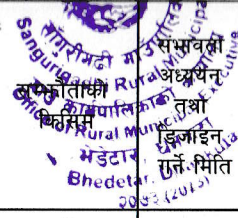 सम्झौताको
किसिम
संभाव्यता
अध्ययन
तथा
डिजाइन
गर्ने मिति
साँगुरीगढी गाउँपालिका
Sangurigadhi Rural Municipality
गाउँ कार्यपालिकाको
Office of Rural Municipal Executive
भेडेटार
Bhedetar